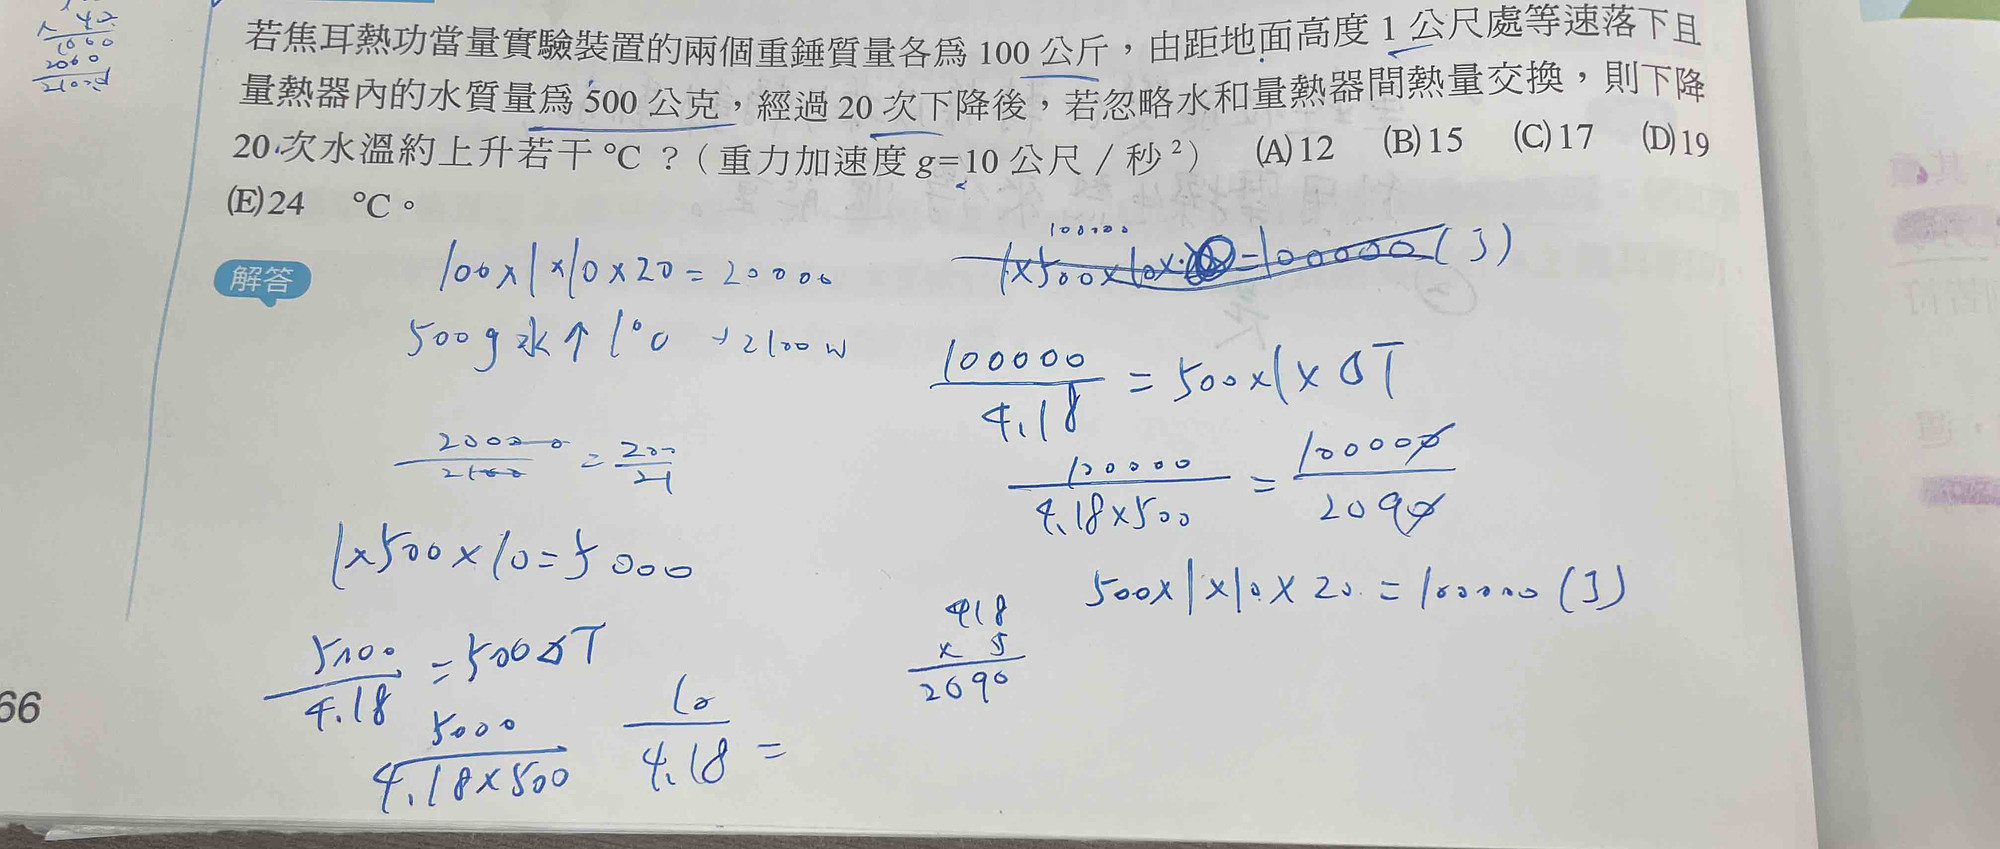 若焦耳熱功當量實驗裝置的兩個重錘質量各為 100 公斤，由距地面高度 1 公尺處等速落下且
量熱器內的水質量為 500 公克，經過 20 次下降後，若忽略水和量熱器間熱量交換，則下降
20 次水溫約上升若干 °C ？（重力加速度 g=10 公尺／秒²） (A)12 (B)15 (C)17 (D)19
(E)24 °C。
解答
100×1×10×20=20000
500g水↑1°C →2100w
20000/2100 = 200/21
1×500×10=5000
5000/4.18 = 500ΔT
5000/4.18×500
10/4.18 =
100000
=100000(J)
100000/4.18 = 500×1×ΔT
100000/4.18×500 = 100000/2090
500×1×10×20=100000(J)
418
× 5
2090
66